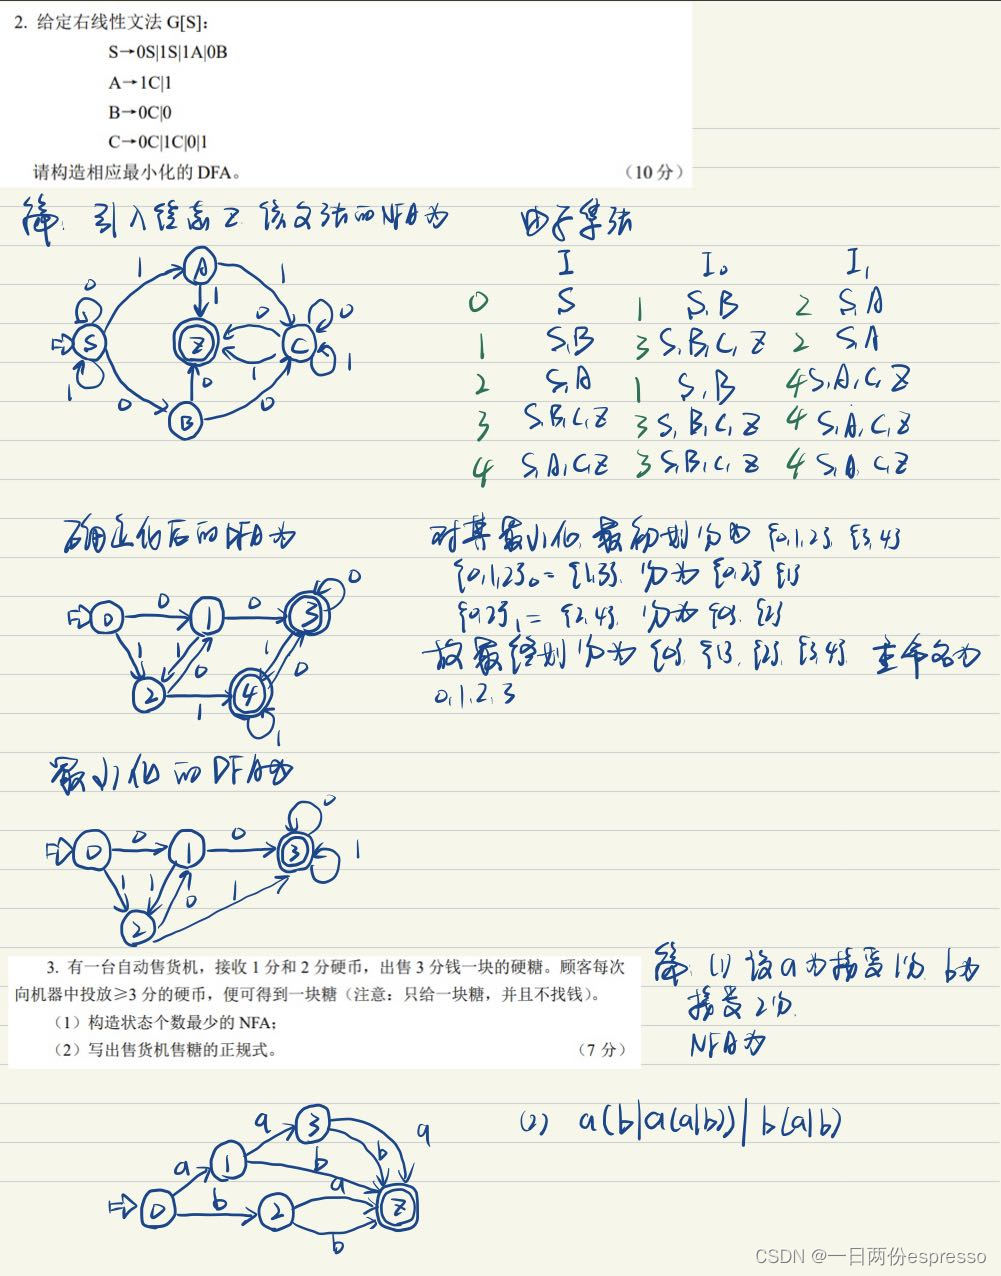 2. 给定右线性文法 G[S]:
S→0S|1S|1A|0B
A→1C|1
B→0C|0
C→0C|1C|0|1
请构造相应最小化的 DFA。
(10 分)
解: 引入终态 Z 该文法的NFA为
S
A
B
C
Z
0
1
1
0
1
1
0
0
0
1
0
1
由子集法
I I₀ I₁
0 S 1 S,B 2 S,A
1 S,B 3 S,B,C,Z 2 S,A
2 S,A 1 S,B 4 S,A,C,Z
3 S,B,C,Z 3 S,B,C,Z 4 S,A,C,Z
4 S,A,C,Z 3 S,B,C,Z 4 S,A,C,Z
确定化后的DFA为
0 0 1 0 3 0
1 1 0 1 0
2 1 4
1
对其最小化, 最初划分为 {0,1,2} {3,4}
{0,1,2}₀ = {1,3}, 分为 {0,2} {1}
{0,2}₁ = {2,4}, 分为 {0}, {2}
故最终划分为 {0}, {1}, {2}, {3,4} 重命名为
0,1,2,3
最小化的DFA为
0 0 1 0 3 0
1 1 0 1 1
2
3. 有一台自动售货机，接收 1 分和 2 分硬币，出售 3 分钱一块的硬糖。顾客每次
向机器中投放≥3 分的硬币，便可得到一块糖（注意：只给一块糖，并且不找钱）。
（1）构造状态个数最少的 NFA；
（2）写出售货机售糖的正规式。
（7 分）
解: (1) 设a为接受1分, b为
接受2分.
NFA为
a 3 a
a 1 b b
0 b 2 a Z
b
(2) a(b|a(a|b))|b(a|b)
CSDN @一日两份espresso